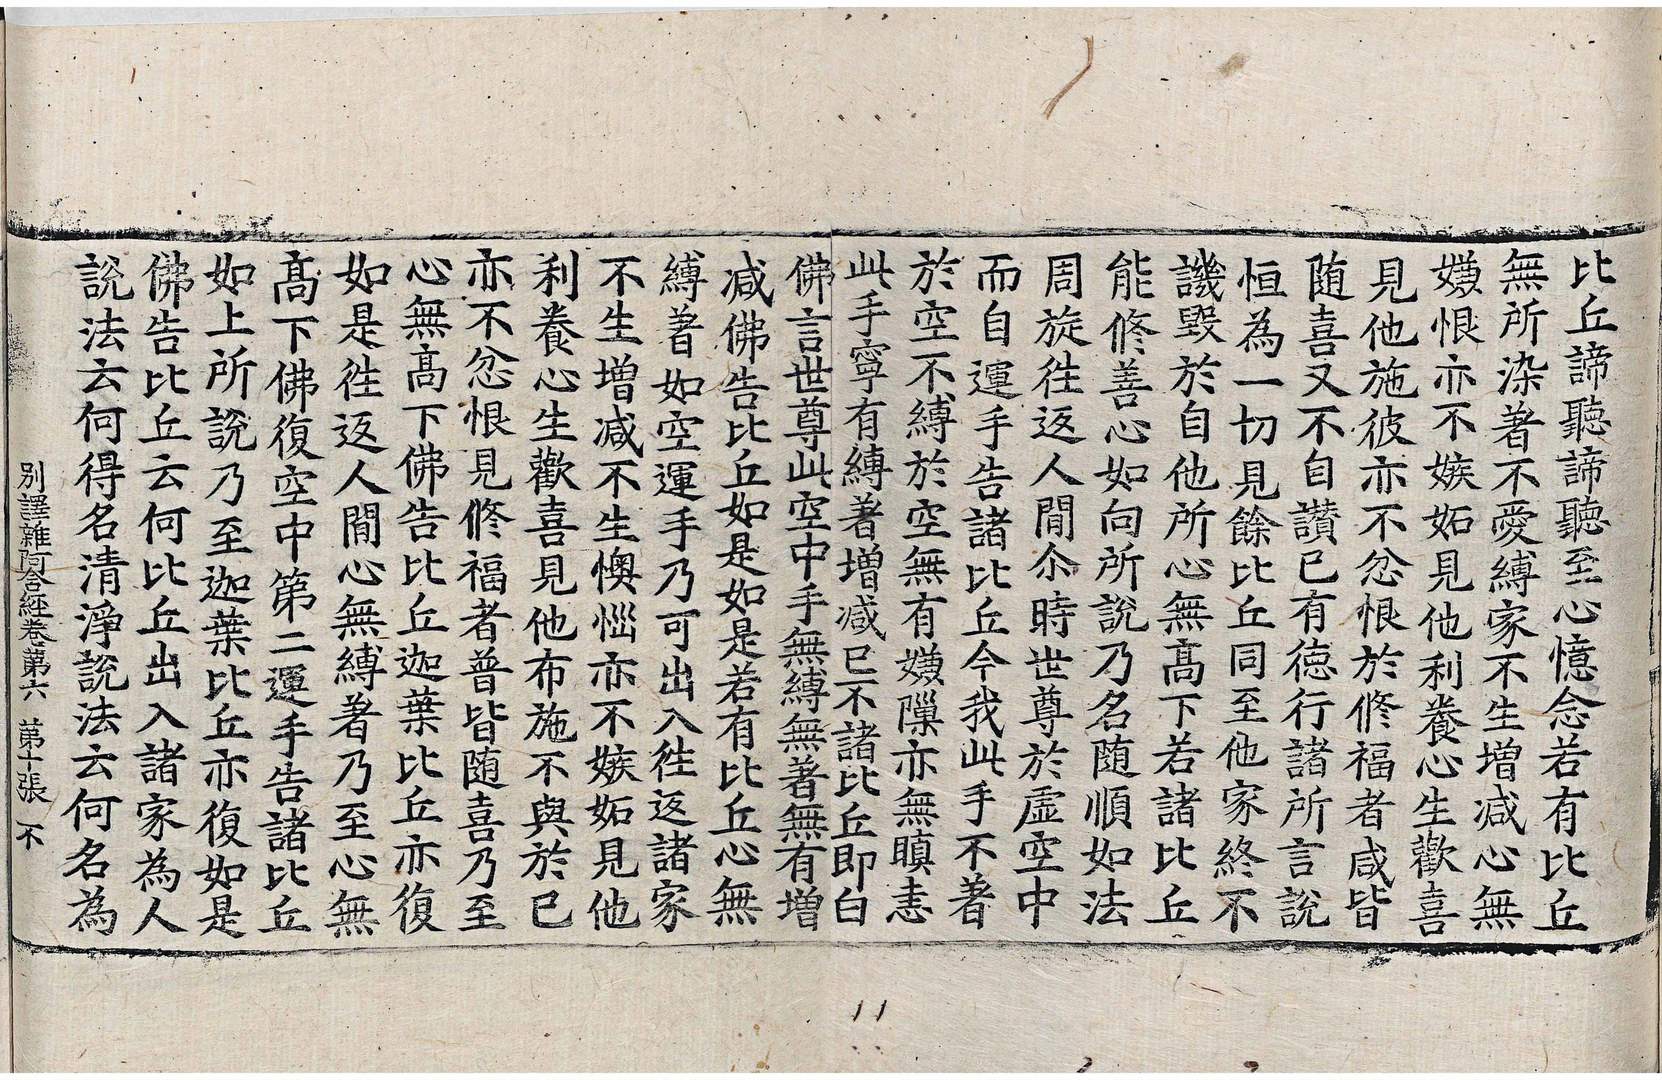 比丘諦聽諦聽至心憶念若有比丘
無所染著不愛縛家不生增减心無
嫌恨亦不嫉妬見他利養心生歡喜
見他施彼亦不忿恨於修福者咸皆
随喜又不自讃已有德行諸所言說
恒為一切見餘比丘同至他家終不
譏毀於自他所心無髙下若諸比丘
能修善心如向所說乃名随順如法
周旋往返人閒尒時世尊於虛空中
而自運手告諸比丘今我此手不著
於空不縛於空無有嫌隟亦無瞋恚
此手寧有縛著增减已不諸比丘即白
佛言世尊此空中手無縛無著無有增
减佛告比丘如是如是若有比丘心無
縛著如空運手乃可出入往返諸家
不生增减不生懊惱亦不嫉妬見他
利養心生歡喜見他布施不與於已
亦不忿恨見修福者普皆随喜乃至
心無髙下佛告比丘迦葉比丘亦復
如是往返人閒心無縛著乃至心無
髙下佛復空中第二運手告諸比丘
如上所說乃至迦葉比丘亦復如是
佛告比丘云何比丘出入諸家為人
說法云何得名清淨說法云何名為
別譯雜阿含經卷第六 第十張 不